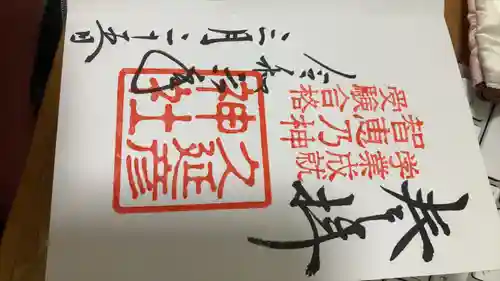 奉拝
学業成就
智恵乃神
受験合格
久延彦
神社
令和
三月二十五日